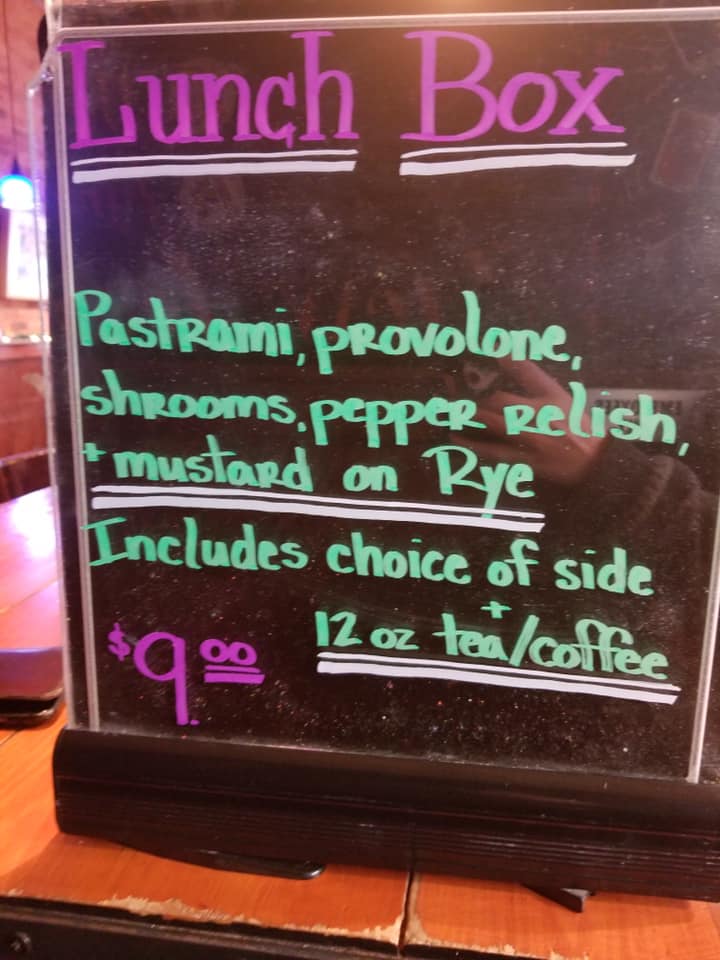 Lunch Box
Pastrami, provolone,
shrooms, pepper relish,
+ mustard on Rye
Includes choice of side
+
12 oz tea/coffee
$9.00